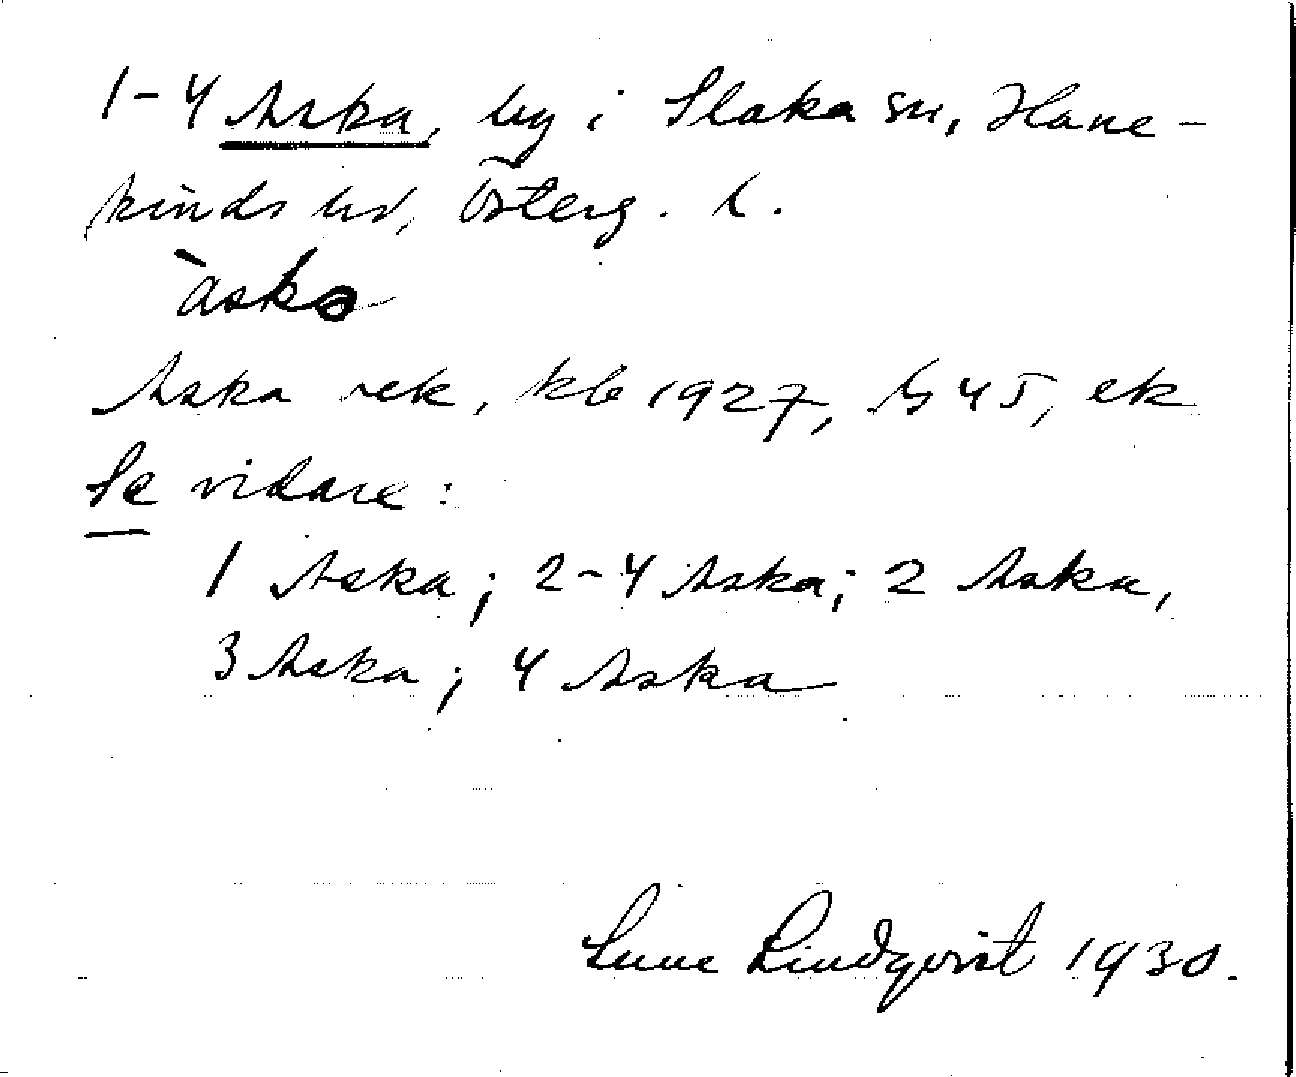 1-4 Aska, by i Slaka sn, Hane-
kinds hd, Österg. l.
àska
Aska rek, kb 1927, G 45, ek
Se vidare:
1 Aska; 2-4 Aska; 2 Aska,
3 Aska; 4 Aska
Sune Lindqvist 1930.